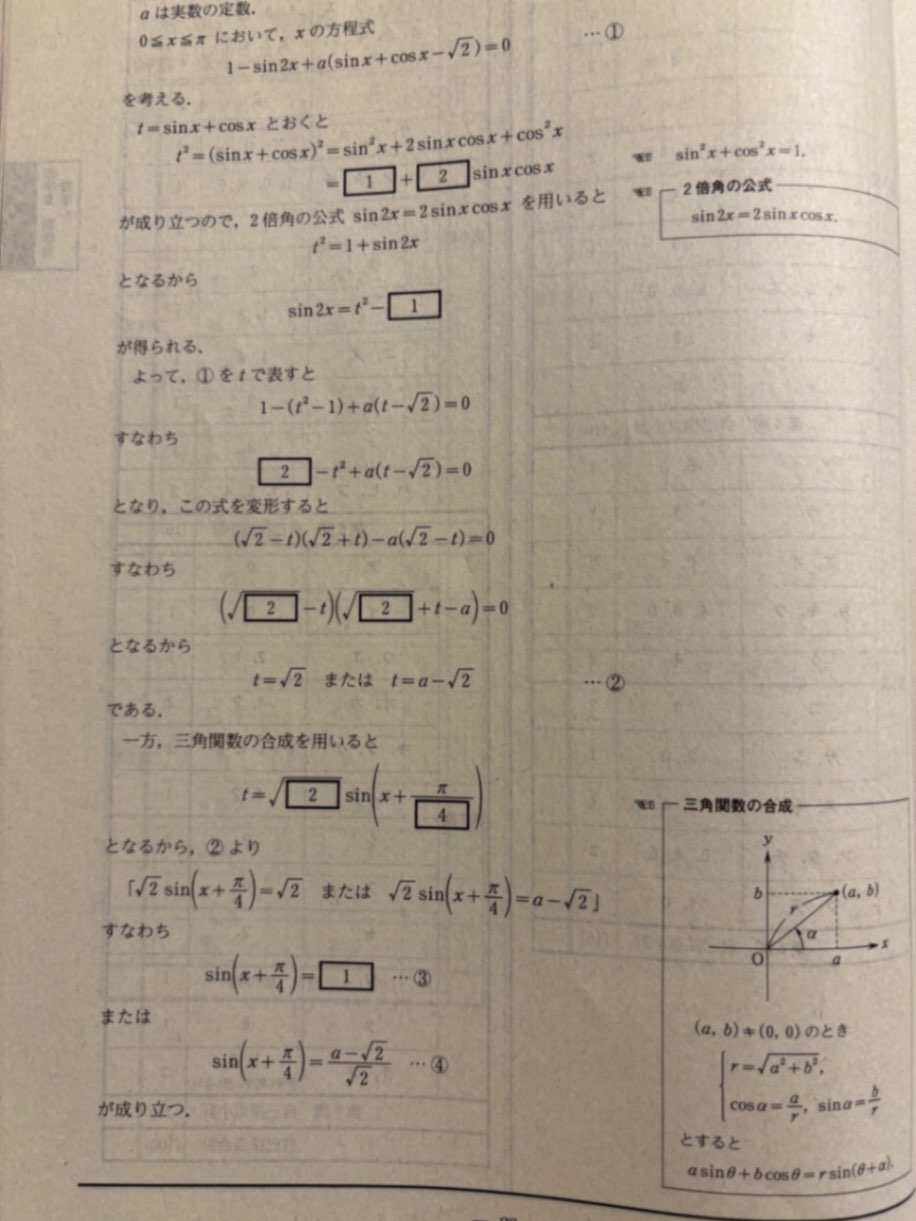 aは実数の定数.
0≦x≦π において, xの方程式
1−sin2x+a(sinx+cosx−√2)=0 …①
を考える.
t=sinx+cosx とおくと
t²=(sinx+cosx)²=sin²x+2sinxcosx+cos²x
= 1 + 2 sinxcosx
が成り立つので, 2倍角の公式 sin2x=2sinxcosx を用いると
t²=1+sin2x
となるから
sin2x=t²− 1
が得られる.
よって, ①をtで表すと
1−(t²−1)+a(t−√2)=0
すなわち
2 −t²+a(t−√2)=0
となり, この式を変形すると
(√2−t)(√2+t)−a(√2−t)=0
すなわち
(√2−t)(√2+t−a)=0
となるから
t=√2 または t=a−√2 …②
である.
一方, 三角関数の合成を用いると
t=√2 sin(x+π/4)
となるから, ②より
「√2 sin(x+π/4)=√2 または √2 sin(x+π/4)=a−√2」
すなわち
sin(x+π/4)= 1 …③
または
sin(x+π/4)=(a−√2)/√2 …④
が成り立つ.
sin²x+cos²x=1.
2倍角の公式
sin2x=2sinxcosx.
三角関数の合成
y
b (a, b)
r
α
O a x
(a, b)≠(0, 0)のとき
r=√(a²+b²),
cosα=a/r, sinα=b/r
とすると
asinθ+bcosθ=rsin(θ+α).